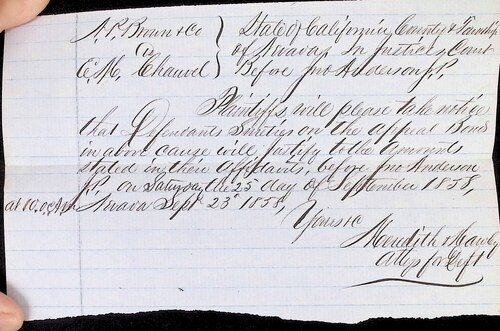 A. P. Brown & Co } State of California, County & Township
vs } of Nevada, In Justices Court
C. M. Chauvel } Before Jno Anderson J.P.
Plaintiffs, will please take notice
that Defendants Sureties on the appeal Bond
in above cause will justify to the amounts
stated in their affidavits, before Jno Anderson
J.P. on Saturday the 25 day of September 1858,
at 10. o,c, A.M. Nevada Sept 23d 1858,
Yours &c
Meredith & Hawley
Attys for Deft